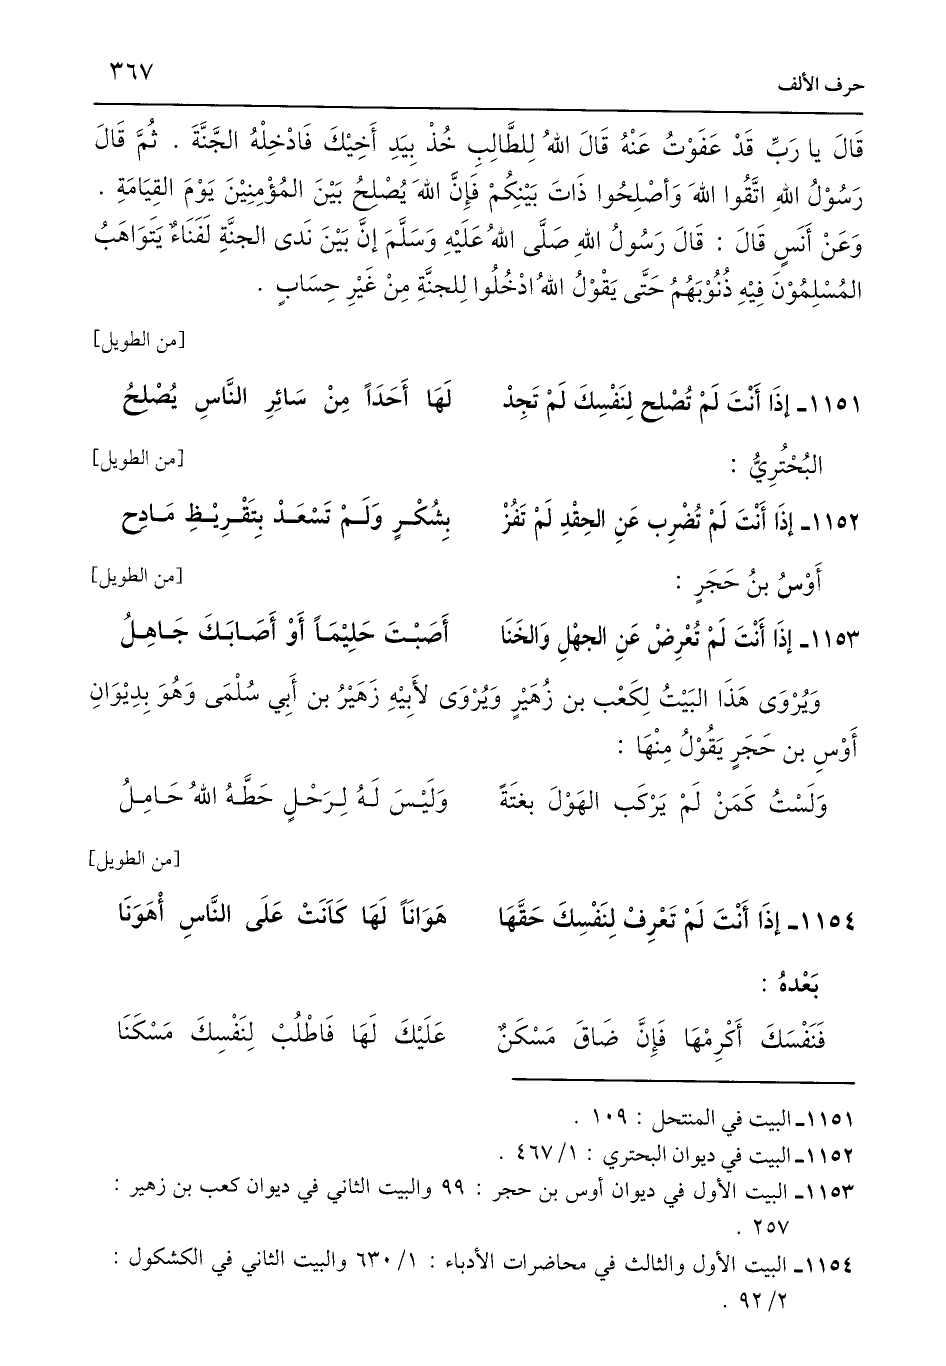 حرف الألف ٣٦٧
قَالَ يا رَبِّ قَدْ عَفَوْتُ عَنْهُ قَالَ اللهُ لِلطَّالِبِ خُذْ بِيَدِ أَخِيْكَ فَادْخِلْهُ الجَنَّةَ . ثُمَّ قَالَ
رَسُوْلُ اللهِ اتَّقُوا اللهَ وَأصْلِحُوا ذَاتَ بَيْنِكُمْ فَإِنَّ اللهَ يُصْلِحُ بَيْنَ المُؤْمِنِيْنَ يَوْمَ القِيَامَةِ .
وَعَنْ أَنَسٍ قَالَ : قَالَ رَسُولُ اللهِ صَلَّى اللهُ عَلَيْهِ وَسَلَّمَ إنَّ بَيْنَ نَدى الجنَّةِ لَفَنَاءٌ يَتَواهَبُ
المُسْلِمُوْنَ فِيْهِ ذُنُوْبَهُمْ حَتَّى يَقُوْلُ اللهُ ادْخُلُوا لِلجنةِ مِنْ غَيْرِ حِسَابٍ .
[من الطويل]
١١٥١ـ إذَا أَنْتَ لَمْ تُصْلِح لِنَفْسِكَ لَمْ تَجِدْ لَهَا أَحَدَاً مِنْ سَائِرِ النَّاسِ يُصْلِحُ
البُحْتُرِيُّ : [من الطويل]
١١٥٢ـ إذَا أَنْتَ لَمْ تُضْرِب عَنِ الحِقْدِ لَمْ تَفُزْ بِشُكْرٍ وَلَمْ تَسْعَدْ بِتَقْرِيْظِ مَادِحِ
أَوْسُ بنُ حَجَرٍ : [من الطويل]
١١٥٣ـ إذَا أَنْتَ لَمْ تُعْرِضْ عَنِ الجهْلِ وَالخَنَا أَصَبْتَ حَلِيْمَاً أَوْ أَصَابَكَ جَاهِلُ
وَيُرْوَى هَذَا البَيْتُ لِكَعْب بن زُهَيْرٍ وَيُرْوَى لأَبِيْهِ زَهَيْرُ بن أَبِي سُلْمَى وَهُوَ بِدِيْوَانِ
أَوْسِ بن حَجَرٍ يَقُوْلُ مِنْهَا :
وَلَسْتُ كَمَنْ لَمْ يَرْكَب الهَوْلَ بغتَةً وَلَيْسَ لَهُ لِرَحْلٍ حَطَّهُ اللهُ حَامِلُ
[من الطويل]
١١٥٤ـ إذَا أَنْتَ لَمْ تَعْرِفْ لِنَفْسِكَ حَقَّهَا هَوَانَاً لَهَا كَانَتْ عَلَى النَّاسِ أُهَوَنَا
بَعْدهُ :
فَنَفْسَكَ أَكْرِمْهَا فَإِنَّ ضَاقَ مَسْكَنٌ عَلَيْكَ لَهَا فَاطْلُبْ لِنَفْسِكَ مَسْكَنَا
١١٥١ـ البيت في المنتحل : ١٠٩ .
١١٥٢ـ البيت في ديوان البحتري : ١/ ٤٦٧ .
١١٥٣ـ البيت الأول في ديوان أوس بن حجر : ٩٩ والبيت الثاني في ديوان كعب بن زهير :
٢٥٧ .
١١٥٤ـ البيت الأول والثالث في محاضرات الأدباء : ١/ ٦٣٠ والبيت الثاني في الكشكول :
٢/ ٩٢ .